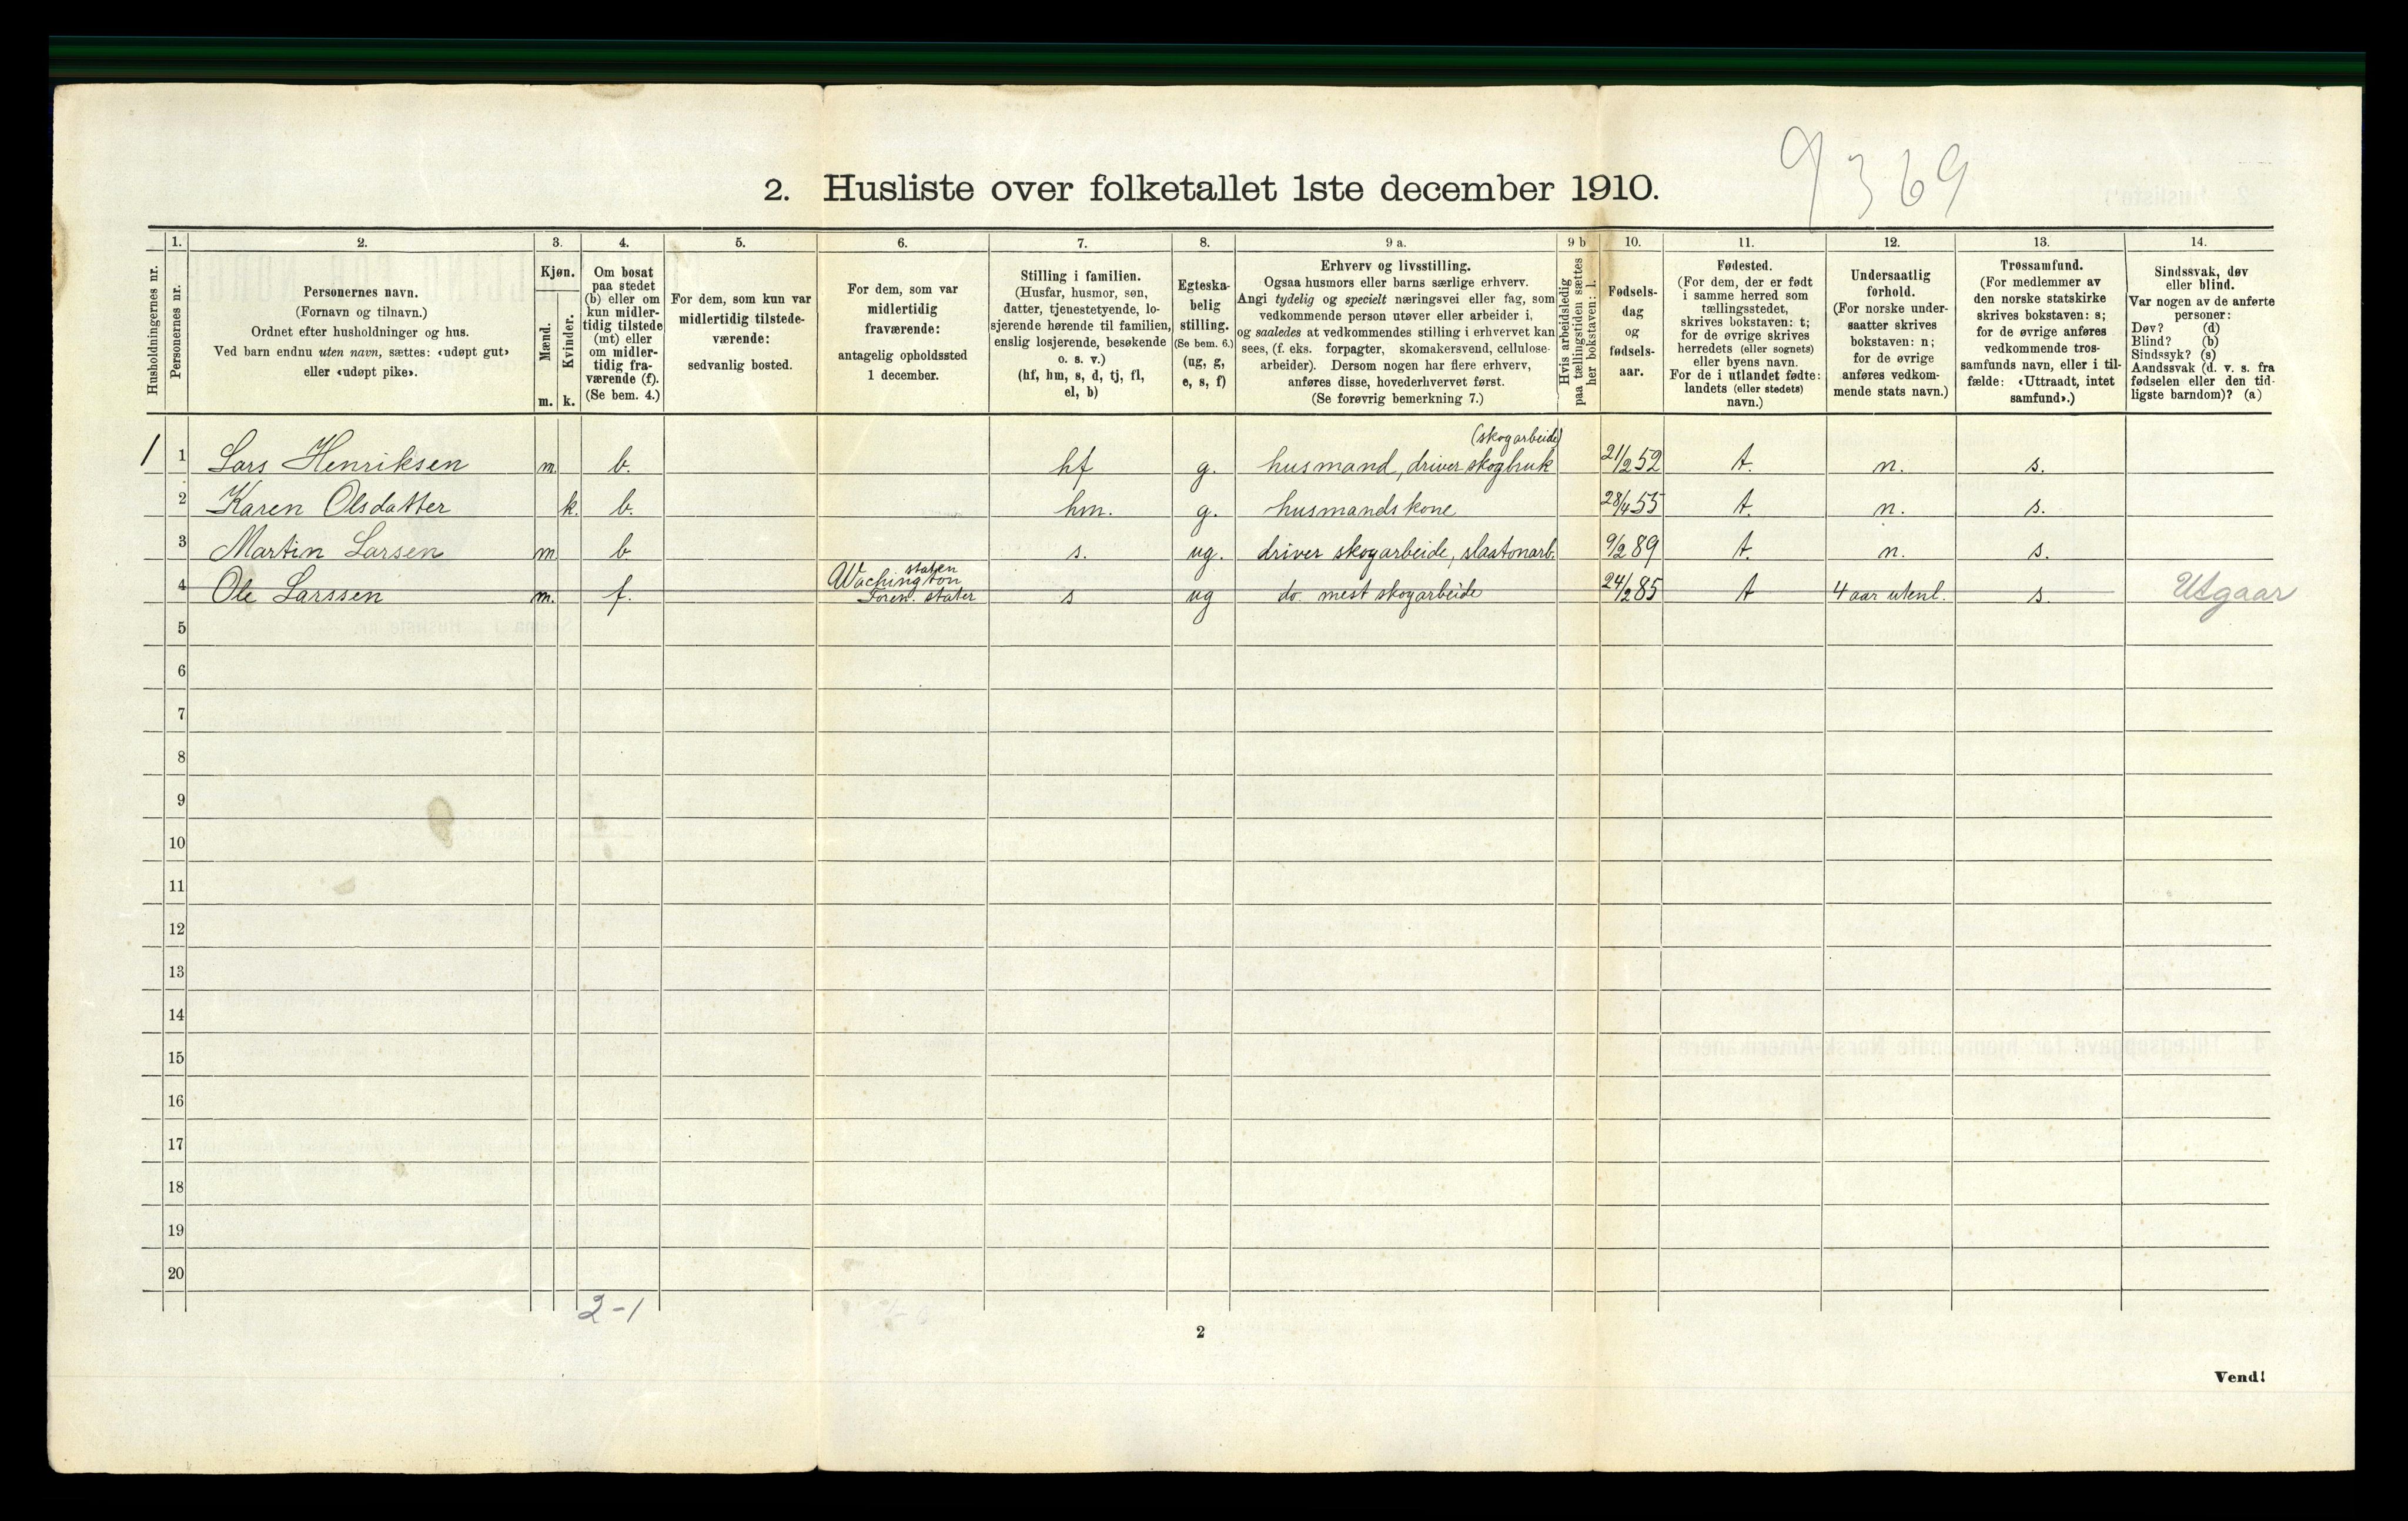 9369
2. Husliste over folketallet 1ste december 1910.
Husholdningernes nr.
1.
Personernes nr.
2.
Personernes navn.
(Fornavn og tilnavn.)
Ordnet efter husholdninger og hus.
Ved barn endnu uten navn, sættes: «udøpt gut»
eller «udøpt pike».
3.
Kjøn.
Mænd.
Kvinder.
m. k.
4.
Om bosat
paa stedet
(b) eller om
kun midler-
tidig tilstede
(mt) eller
om midler-
tidig fra-
værende (f).
(Se bem. 4.)
5.
For dem, som kun var
midlertidig tilstede-
værende:
sedvanlig bosted.
6.
For dem, som var
midlertidig
fraværende:
antagelig opholdssted
1 december.
7.
Stilling i familien.
(Husfar, husmor, søn,
datter, tjenestetyende, lo-
sjerende hørende til familien,
enslig losjerende, besøkende
o. s. v.)
(hf, hm, s, d, tj, fl,
el, b)
8.
Egteska-
belig
stilling.
(Se bem. 6.)
(ug, g,
e, s, f)
9 a.
Erhverv og livsstilling.
Ogsaa husmors eller barns særlige erhverv.
Angi tydelig og specielt næringsvei eller fag, som
vedkommende person utøver eller arbeider i,
og saaledes at vedkommendes stilling i erhvervet kan
sees, (f. eks. forpagter, skomakersvend, cellulose-
arbeider). Dersom nogen har flere erhverv,
anføres disse, hovederhvervet først.
(Se forøvrig bemerkning 7.)
9 b
Hvis arbeidsledig
paa tællingstiden sættes
her bokstaven: l.
10.
Fødsels-
dag
og
fødsels-
aar.
11.
Fødested.
(For dem, der er født
i samme herred som
tællingsstedet,
skrives bokstaven: t;
for de øvrige skrives
herredets (eller sognets)
eller byens navn.
For de i utlandet fødte:
landets (eller stedets)
navn.)
12.
Undersaatlig
forhold.
(For norske under-
saatter skrives
bokstaven: n;
for de øvrige
anføres vedkom-
mende stats navn.)
13.
Trossamfund.
(For medlemmer av
den norske statskirke
skrives bokstaven: s;
for de øvrige anføres
vedkommende tros-
samfunds navn, eller i til-
fælde: «Uttraadt, intet
samfund».)
14.
Sindssvak, døv
eller blind.
Var nogen av de anførte
personer:
Døv? (d)
Blind? (b)
Sindssyk? (s)
Aandssvak (d. v. s. fra
fødselen eller den tid-
ligste barndom)? (a)
(skogarbeide)
1 1 Lars Henriksen m. b. hf g. husmand, driver skogbruk 21/2 52 t. n. s.
2 Karen Olsdatter k. b. hm. g. husmandskone 28/4 55 t. n. s.
3 Martin Larsen m. b s. ug. driver skogarbeide, slaatonarb. 9/2 89 t. n. s.
staten
Wachington
4 Ole Larssen m. f. Foren. stater s ug do. mest skogarbeide 24/2 85 t 4 aar utenl. s. Utgaar
5
6
7
8
9
10
11
12
13
14
15
16
17
18
19
20
2-1
2
Vend!